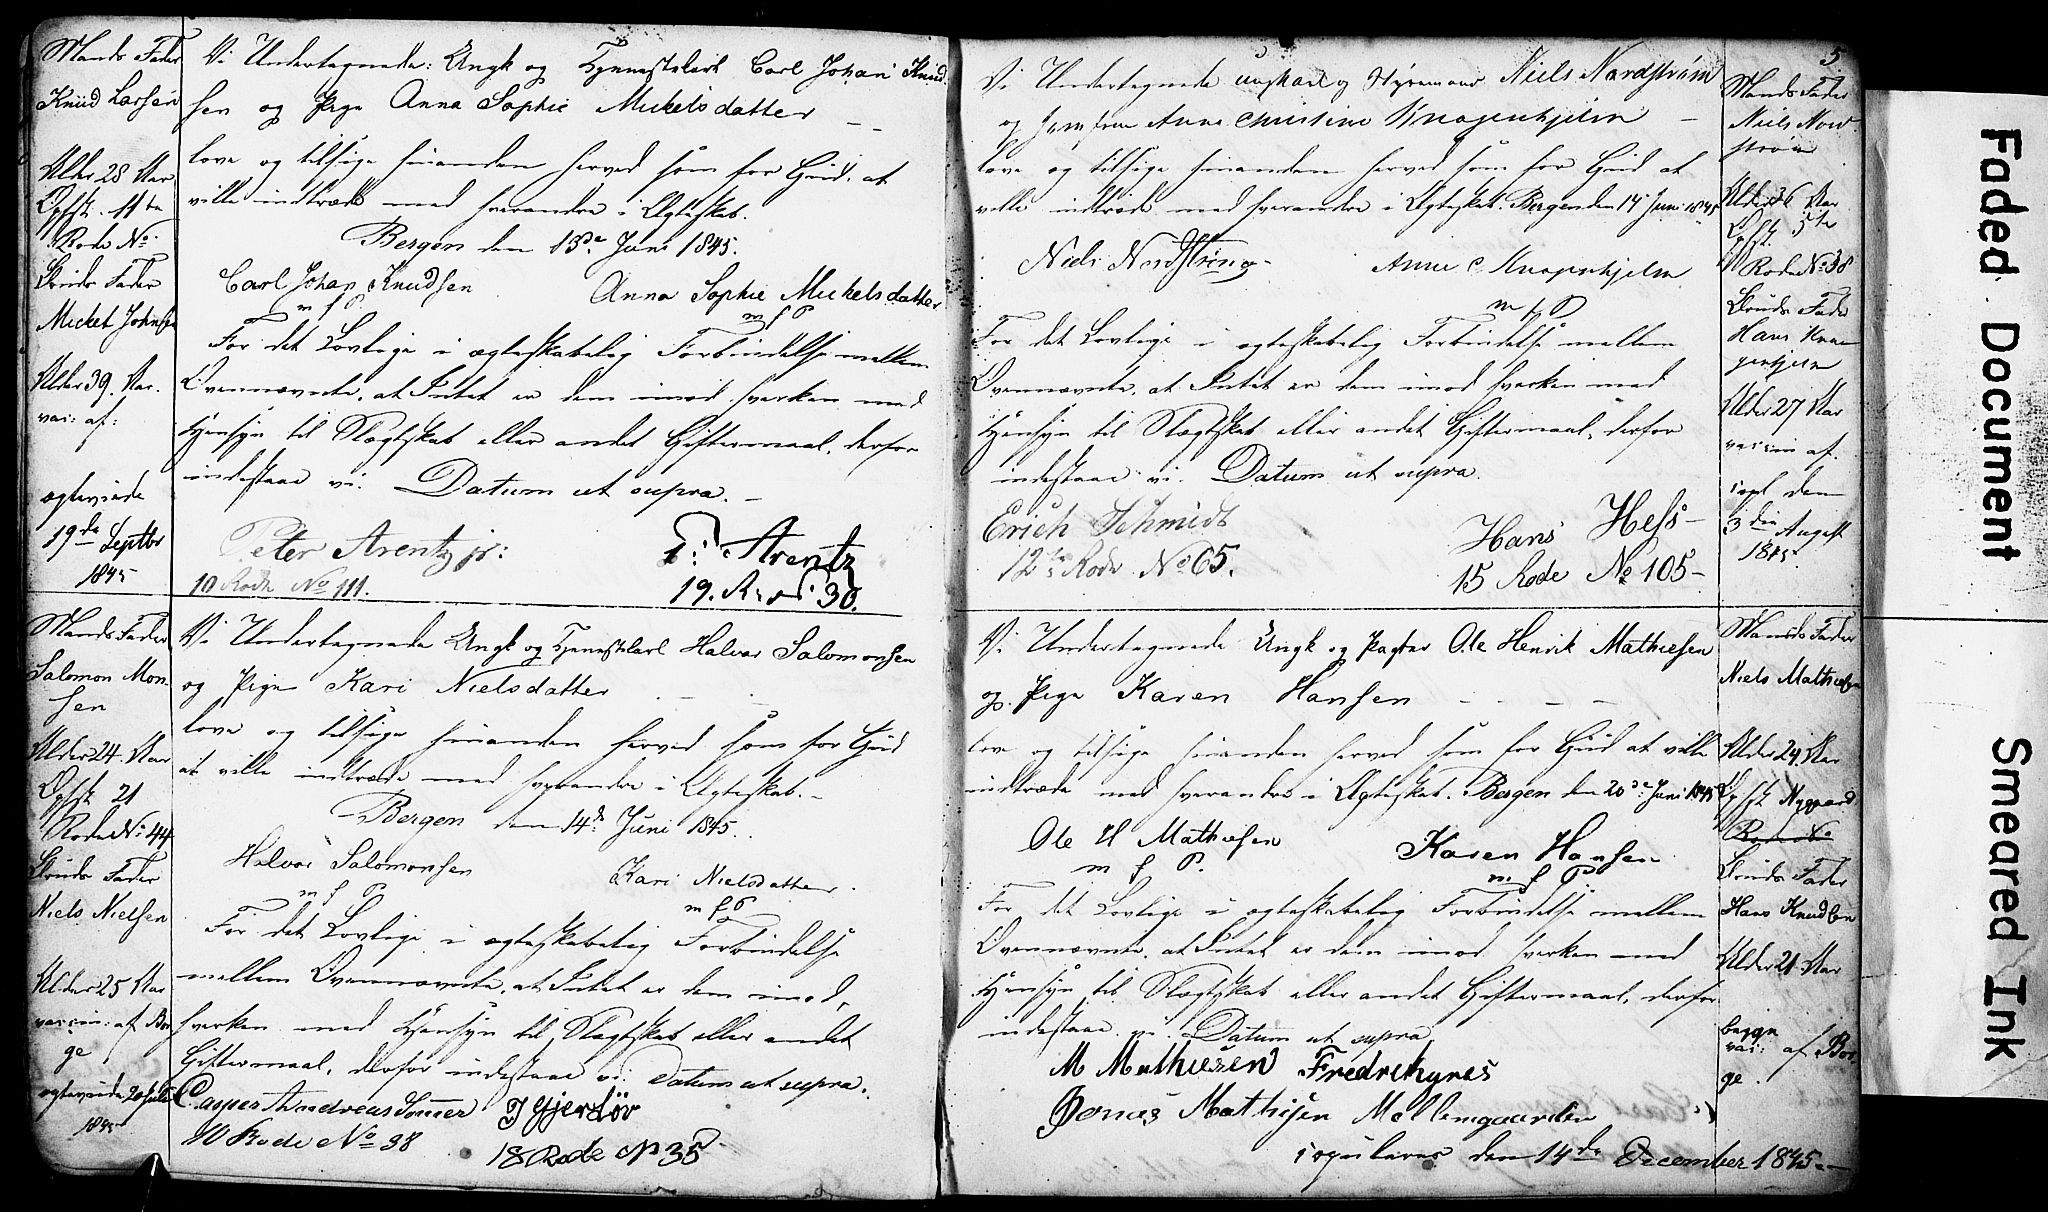 Mands Fader
Knud Larsen
Alder 28 Aar.
Opfst. 11te
Rode No.
Bruds Fader
Mickel Johnsen
Alder 39. Aar.
vac: af:
ægteviede
19de Septbr
1845
Vi Undertegnede: Ungk og Tjenestekarl Carl Johan Knud
sen og Pige Anna Sophie Mickelsdatter
love og tilsige hinanden herved som for Gud, at
ville indtræde med hverandre i Ægteskab.
Bergen den 13de Juni 1845.
Carl Johan Knudsen Anna Sophie Mickelsdatter
m f P. m f P
For det Lovlige i ægteskabelig Forbindelse mellem
Ovennævnte, at Intet er dem imod hverken med
Hensyn til Slægtskab eller andet Giftermaal, derfor
indestaae vi. Datum ut supra.
Peter Arentz jr: Arentz
10 Rode No 111. 19. Rode 30.
Mands Fader
Salomon Mon-
sen
Alder 24. Aar
Opfst 21
Rode No 44
Bruds Fader
Niels Nielsen
Alder 25 Aar
vaccin: af Bor
ge
ægteviede 20 Juli
1845
Vi Undertegnede Ungk og Tjenestekarl Halvor Salomonsen
og Pige Kari Nielsdatter
love og tilsige hinanden herved som for Gud
at ville indtræde med hverandre i Ægteskab.
Bergen den 14de Juni 1845.
Halvor Salomonsen Kari Nielsdatter.
m f P m f P
For det Lovlige i ægteskabelig Forbindelse
mellem Ovennævnte, at Intet er dem imod,
hverken med Hensyn til Slægtskab eller andet
Giftermaal, derfor indestaae vi. Datum ut supra.
Casper Andreas Sommer J Gjerdöv
10 Rode No 38 18 Rode No 35
5
Vi Undertegnede ungkarl og Styrmand Niels Nordström
og Jomfrue Anne Christine Knagenhjelm
love og tilsige hinanden herved som for Gud at
ville indtræde med hverandre i Ægteskab. Bergen den 14 Juni 1845
Niels Nordström Anne C. Knagenhjelm
m f P
For det Lovlige i ægteskabelig Forbindelse mellem
Ovennævnte, at Intet er dem imod hverken med
Hensyn til Slægtskab eller andet Giftermaal, derfor
indestaae vi. Datum ut supra.
Erich Schmidt Hans Hess
12te Rode No 65. 15 Rode No 105
Mands Fader
Niels Nord-
strøm
Alder 36 Aar
Opfst. 5te
Rode No 38
Bruds Fader
Hans Knag
enhjelm
Alder 27 Aar
vaccin af.
copl den
3die August
1845.
Vi Undertegnede Ungk og Pagter Ole Henrik Mathiesen
og Pige Karen Hansen
love og tilsige hinanden herved som for Gud at ville
indtræde med hverandre i Ægteskab. Bergen den 20de Juni 1845
Ole H Mathiesen Karen Hansen
m f P. m f P
For det Lovlige i ægteskabelig Forbindelse mellem
Ovennævnte, at Intet er dem imod hverken med
Hensyn til Slægtskab eller andet Giftermaal, derfor
indestaae vi Datum ut supra
M Mathiesen Fredrikynes
Jonas Mathisen Mellemgaarden
copuleres den 14de December 1845.
Mands Fader
Niels Mathiesen
Alder 24. Aar
Opfst Nygaard
Rode No
Bruds Fader
Hans Knudsen
Alder 21. Aar
begge
vac: af Bor
ge.
Faded Document
Smeared Ink